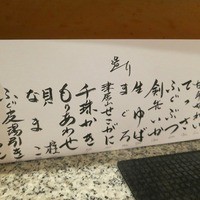 てっさ
ふぐぶつ
剣先いか
生ゆば
まぐろ
造り
津居山せこがに
千珠かき
もりあわせ
貝
なまこ
ふぐ皮湯引き